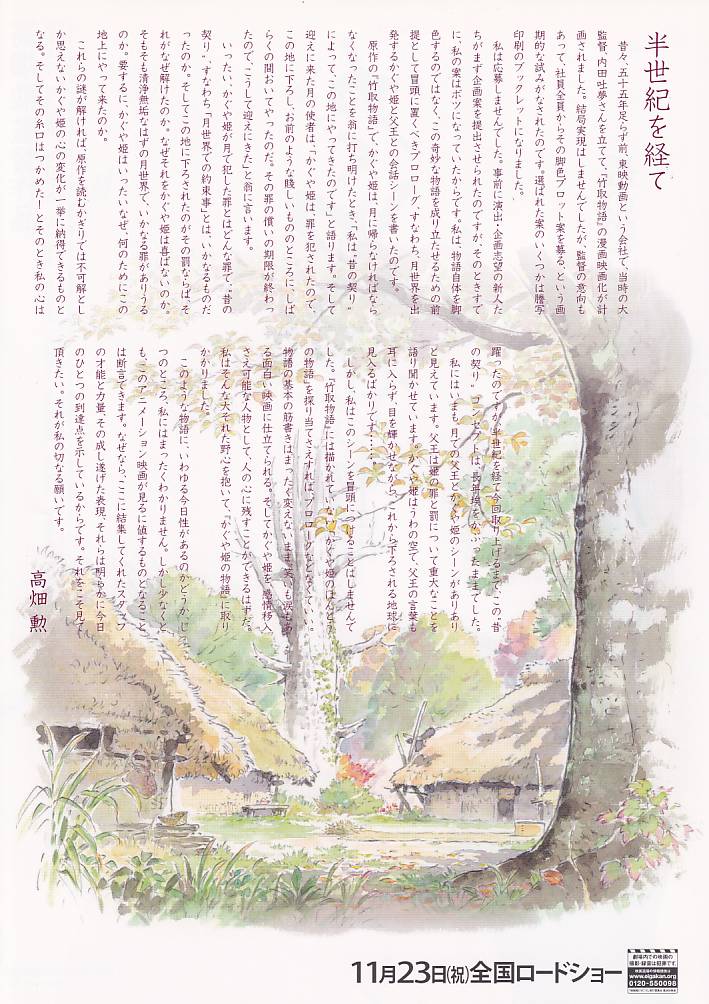 半世紀を経て
昔々、五十五年足らず前、東映動画という会社で、当時の大
監督、内田吐夢さんを立てて、『竹取物語』の漫画映画化が計
画されました。結局実現はしませんでしたが、監督の意向も
あって、社員全員からその脚色プロット案を募る、という画
期的な試みがなされたのです。選ばれた案のいくつかは謄写
印刷のブックレットになりました。
私は応募しませんでした。事前に演出・企画志望の新人た
ちがまず企画案を提出させられたのですが、そのときすで
に、私の案はボツになっていたからです。私は、物語自体を脚
色するのではなく、この奇妙な物語を成り立たせるための前
提として冒頭に置くべきプロローグ、すなわち、月世界を出
発するかぐや姫と父王との会話シーンを書いたのです。
原作の『竹取物語』で、かぐや姫は、月に帰らなければなら
なくなったことを翁に打ち明けたとき、「私は、“昔の契り”
によって、この地にやってきたのです」と語ります。そして
迎えに来た月の使者は、「かぐや姫は、罪を犯されたので、
この地に下ろし、お前のような賤しいもののところに、しば
らくの間おいてやったのだ。その罪の償いの期限が終わっ
たので、こうして迎えにきた」と翁に言います。
いったい、かぐや姫が月で犯した罪とはどんな罪で、“昔の
契り”、すなわち「月世界での約束事」とは、いかなるものだ
ったのか。そしてこの地に下ろされたのがその罰ならば、そ
れがなぜ解けたのか。なぜそれをかぐや姫は喜ばないのか。
そもそも清浄無垢なはずの月世界で、いかなる罪がありうる
のか。要するに、かぐや姫はいったいなぜ、何のためにこの
地上にやって来たのか。
これらの謎が解ければ、原作を読むかぎりでは不可解とし
か思えないかぐや姫の心の変化が一挙に納得できるものと
なる。そしてその糸口はつかめた！とそのとき私の心は
躍ったのですが、半世紀を経て今回取り上げるまで、この“昔
の契り”コンセプトは、長年埃をかぶったままでした。
私にはいまも、月での父王とかぐや姫のシーンがありあり
と見えています。父王は姫の罪と罰について重大なことを
語り聞かせています。かぐや姫はうわの空で、父王の言葉も
耳に入らず、目を輝かせながら、これから下ろされる地球に
見入るばかりです・・・・・
しかし、私はこのシーンを冒頭につけることはしませんで
した。『竹取物語』には描かれていない「かぐや姫のほんとう
の物語」を探り当てさえすれば、プロローグなどなくていい。
物語の基本の筋書きはまったく変えないまま、笑いも涙もあ
る面白い映画に仕立てられる。そしてかぐや姫を、感情移入
さえ可能な人物として、人の心に残すことができるはずだ。
私はそんな大それた野心を抱いて、『かぐや姫の物語』に取り
かかりました。
このような物語に、いわゆる今日性があるのかどうか、じ
つのところ、私にはまったくわかりません。しかし少なくと
も、このアニメーション映画が見るに値するものとなること
は断言できます。なぜなら、ここに結集してくれたスタッフ
の才能と力量、その成し遂げた表現、それらは明らかに今日
のひとつの到達点を示しているからです。それをこそ見て
頂きたい。それが私の切なる願いです。
高畑 勲
11月23日(祝)全国ロードショー
劇場内での映画の
撮影・録音は犯罪です。
www.eigakan.org
0120-550098